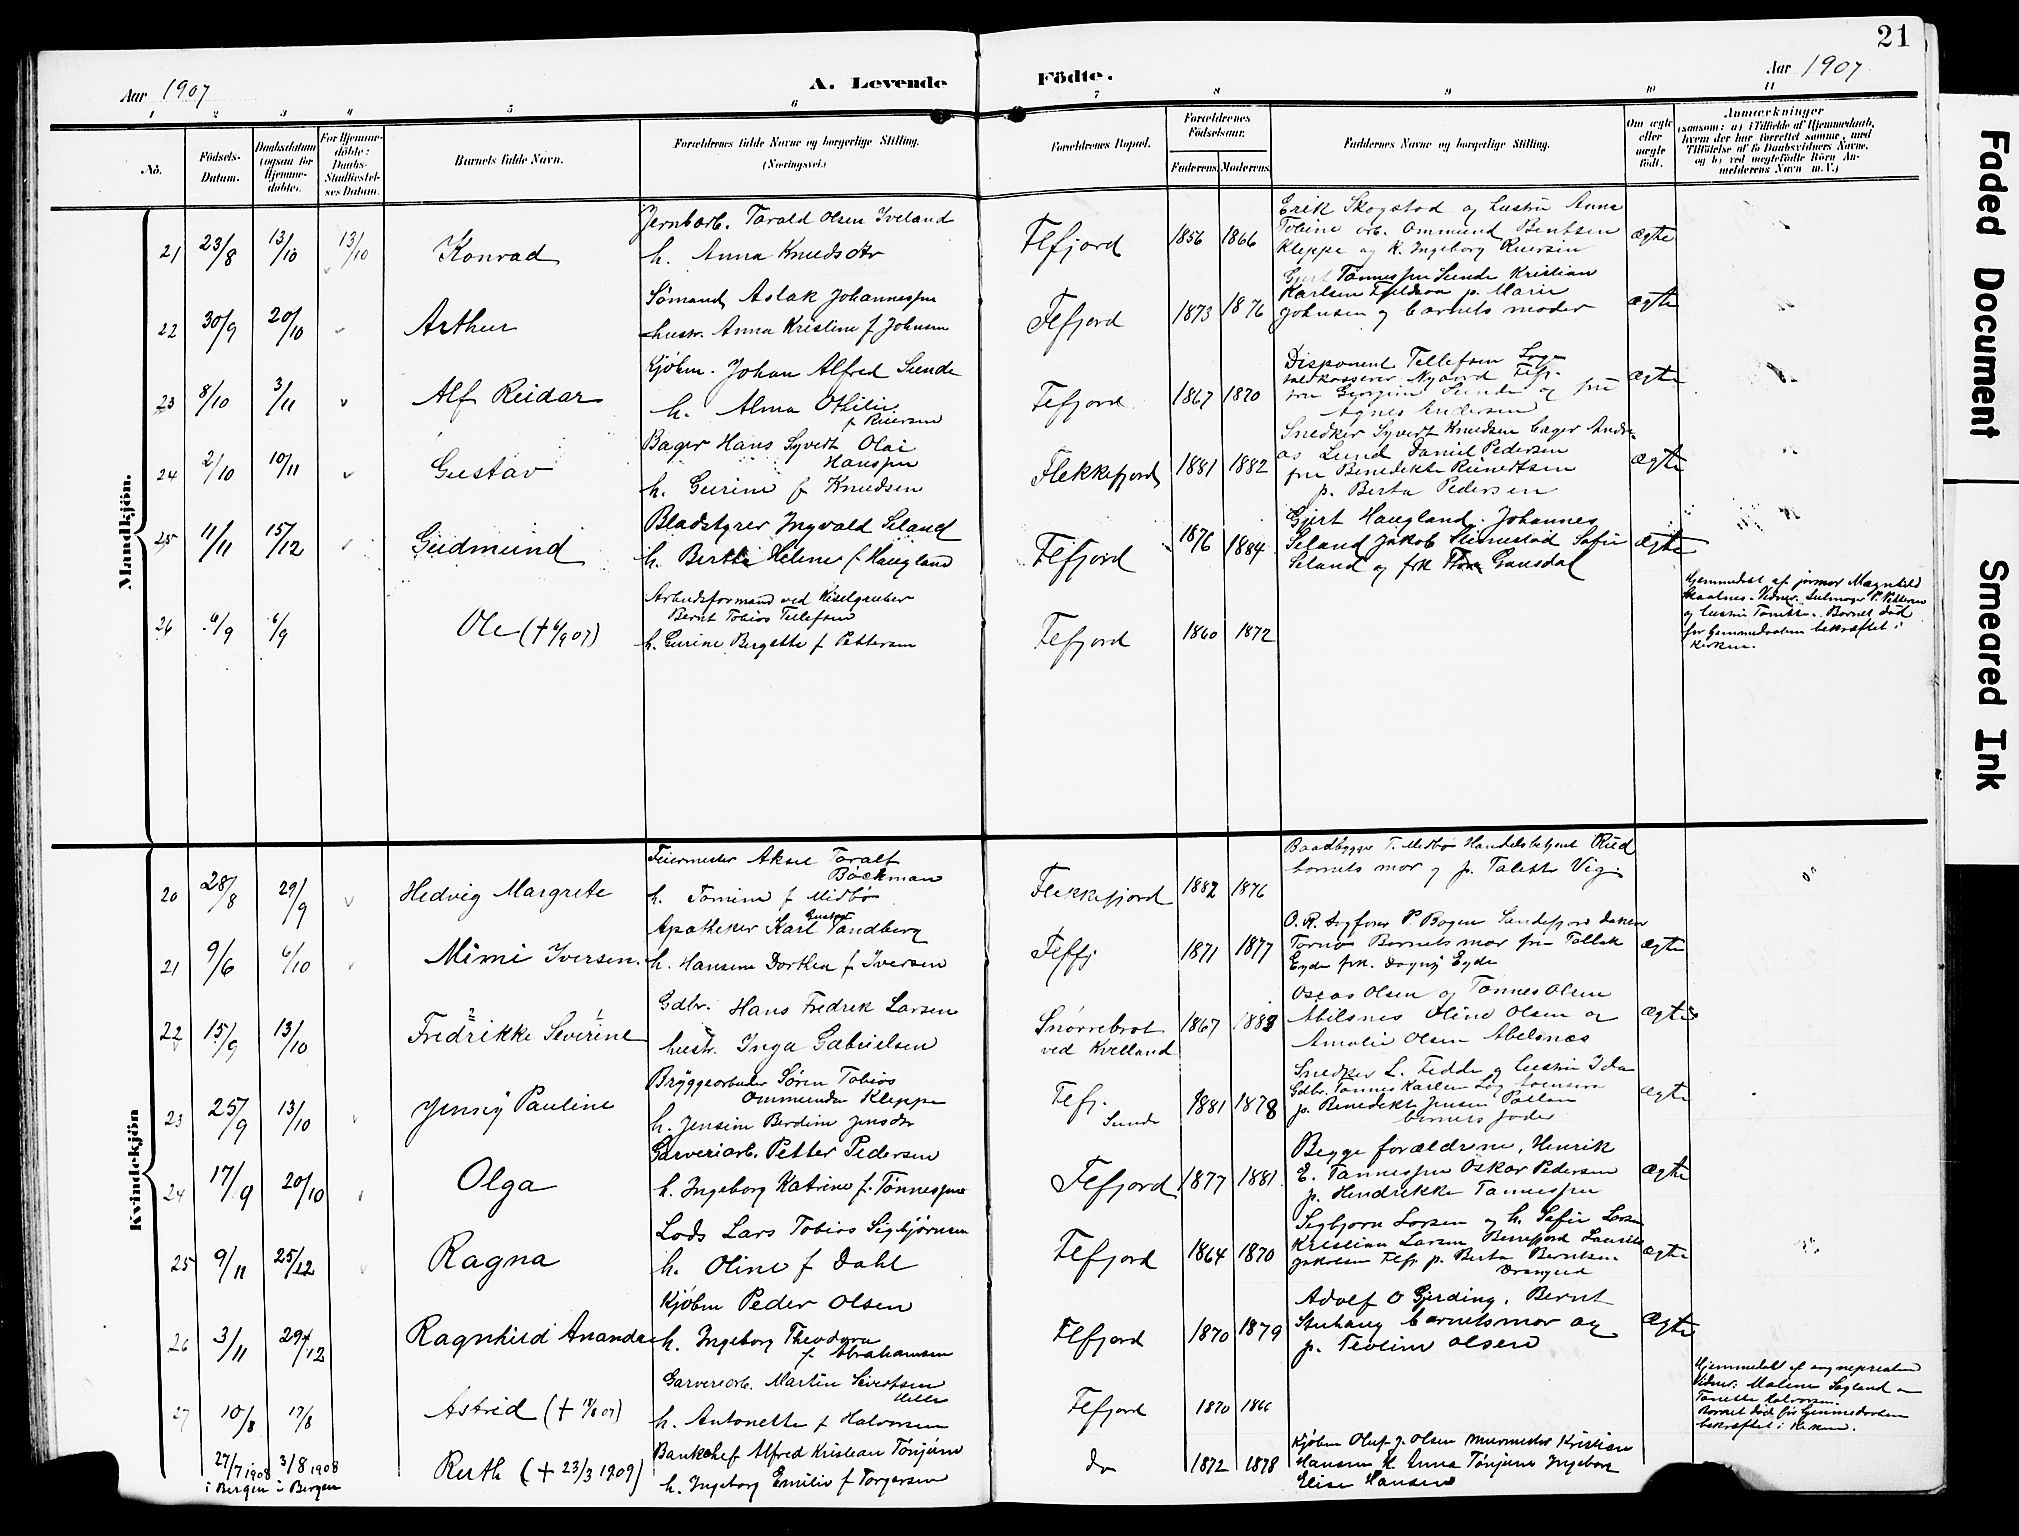 21
Aar 1907 A. Levende Födte. Aar 1907
1 2 3 4 5 6 7 8 9 10 11
No. Födsels-Datum. Daabsdatum (ogsaa for Hjemme-döbte). For Hjemme-döbte: Daabs-Stadfæstel-ses Datum. Barnets fulde Navn. Forældrenes fulde Navne og borgerlige Stilling. (Næringsvei.) Forældrenes Bopæl. Forældrenes Födselsaar. Faderens. Moderens. Faddernes Navne og borgerlige Stilling. Om ægte eller uægte født. Anmærkninger (saasom: a) i Tilfælde af Hjemmedaab, hvem der har forrettet samme, med Tilföielse af to Daabsvidners Navne, og b) ved uægtefödte Börn Anmelderens Navn m. V.)
Mandkjön.
21 23/8 13/10 13/10 Konrad
Jernbarb. Tarald Olsen Iveland
h. Anna Knudsdtr
Flfjord 1856 1866
Erik Skogstad og hustru Anna
Tobine arb. Ommund Bentsen
Kleppe og k. Ingeborg Reiersen
ægte
22 30/9 20/10 Arthur
Sømand Aslak Johannesen
hustr. Anna Kristine f Johnsen
Flfjord 1873 1876
Gjert Tønnessen Sunde Kristian
Karlsen p. Marie
Johnsen og barnets moder
ægte
23 8/10 3/11 Alf Reidar
Kjøbm. Johan Alfred Sunde
h. Alma Othilie
f Reiersen
Flfjord 1867 1870
Disponent Tellefsen Sogn
kasserer Nygaard Flfj.
fru Sunde og fru
Agnes Andersen
ægte
24 2/10 10/11 Gustav
Bager Hans Syvert Olai
Hanssen
h. Gurine f Knudsen
Flekkefjord 1881 1882
Snedker Syvert Knudsen bager Andre-
as Lund Daniel Pedersen
fru Benedikte Reinertsen
p. Berta Pedersen
ægte
25 11/11 15/12 Gudmund
Bladstyrer Ingvald Seland
h. Berthe Helene f Haugland
Flfjord 1876 1884
Gjert Haugland. Johannes
Seland Jakob Stenestad Sofie
Seland og frk Thora Gausdal
ægte
26 6/9 6/9 Ole (+ 6/9 07)
Arbeidsformand ved Kiselgruber
Bernt Tobias Tellefsen
h. Gurine Bergette f Pettersen
Flfjord 1860 1872
Hjemmedøbt af jormor Magnhild
Skaalnes. Vidner: Seilmager P. Pettersen
og hustru Tomine. Barnet død
før hjemmedaaben bekræftet i
kirken.
Kvindekjön
20 28/8 29/9 Hedvig Margrete
Feiermester Aksel Taralf
Bøckman
h. Tomine f Midbø
Flekkefjord 1882 1876
Baadbygger T. Midbø Handelsbetjent Rud
barnets mor og p. Talette Vig.
21 9/6 6/10 Mimi Iversen.
Apotheker Karl Gustav Sandberg
h. Hansine Dorthea f Iversen
Flffj 1871 1877
O. R. Sagfører P. Bogen Sandefjord
Barnets mor fru Tollak
Eyde frk. Dagny Eyde
ægte
22 15/9 13/10 Fredrikke Severine
Gdbr. Hans Fredrik Larsen
hustr. Inga Gabrielsen
Snørrebrot
ved Kvelland 1867 1883
Oscas Olsen og Tønnes Olsen
Abilsnes Oline Olsen og
Amalie Olsen Abelsnæs
ægte
23 25/9 13/10 Jenny Pauline
Bryggearbeider Søren Tobias
Ommundsen Kleppe
h. Jensine Berdine Jensdtr
Flfj.
Sunde 1881 1878
Snedker L. Fedde og hustru Ida
Gdbr. Tønnes Karlsen Log
p. Benedikte Jensen
barnets fader
ægte
24 17/9 20/10 Olga
Garveriarb. Petter Pedersen
h. Ingeborg Katrine f. Tønnessen
Flfjord 1877 1881
Begge forældrene, Henrik
E. Tønnessen Oskar Pedersen
p. Hendrikke Tønnessen
ægte
25 9/11 25/12 Ragna
Lods Lars Tobias Sigbjørnsen
h. Oline f Dahl
Flfjord 1864 1870
Sigbjørn Larsen og h. Sofie Larsen
Kristian Larsen Berrefjord Lauritz
Jakobsen Flfj. p. Berta Berntsen
Drangeid
ægte
26 3/11 29/12 Ragnhild Amanda
Kjøbm Peder Olsen
h. Ingeborg Theodora
f. Abrahamsen
Flfjord 1870 1879
Adolf O Gjerding, Bernt
Stuhaug barnets mor og
p. Tevline Olsen
ægte
27 10/8 17/8 Astrid (+ 19/8 07)
Garveriarb. Martin Sivertsen
h. Antonette f Halvorsen
Flfjord 1870 1866
Hjemmedøbt af sognepresten
Vidner: Malene Søgland
Tonette Halvorsen.
Barnet død før hjemmedaaben
bekræftet i Kirken.
27/7 1908 i Bergen 3/8 1908 i Bergen Ruth (+ 23/3 1909)
Bankchef Alfred Kristian Tønjum
h. Ingeborg Emilie f Torgersen
do 1872 1878
Kjøbm Oluf J. Olsen murmester Kristian
Hansen K. Anna Tønjum Ingeborg
Elise Hansen
Faded Document
Smeared Ink